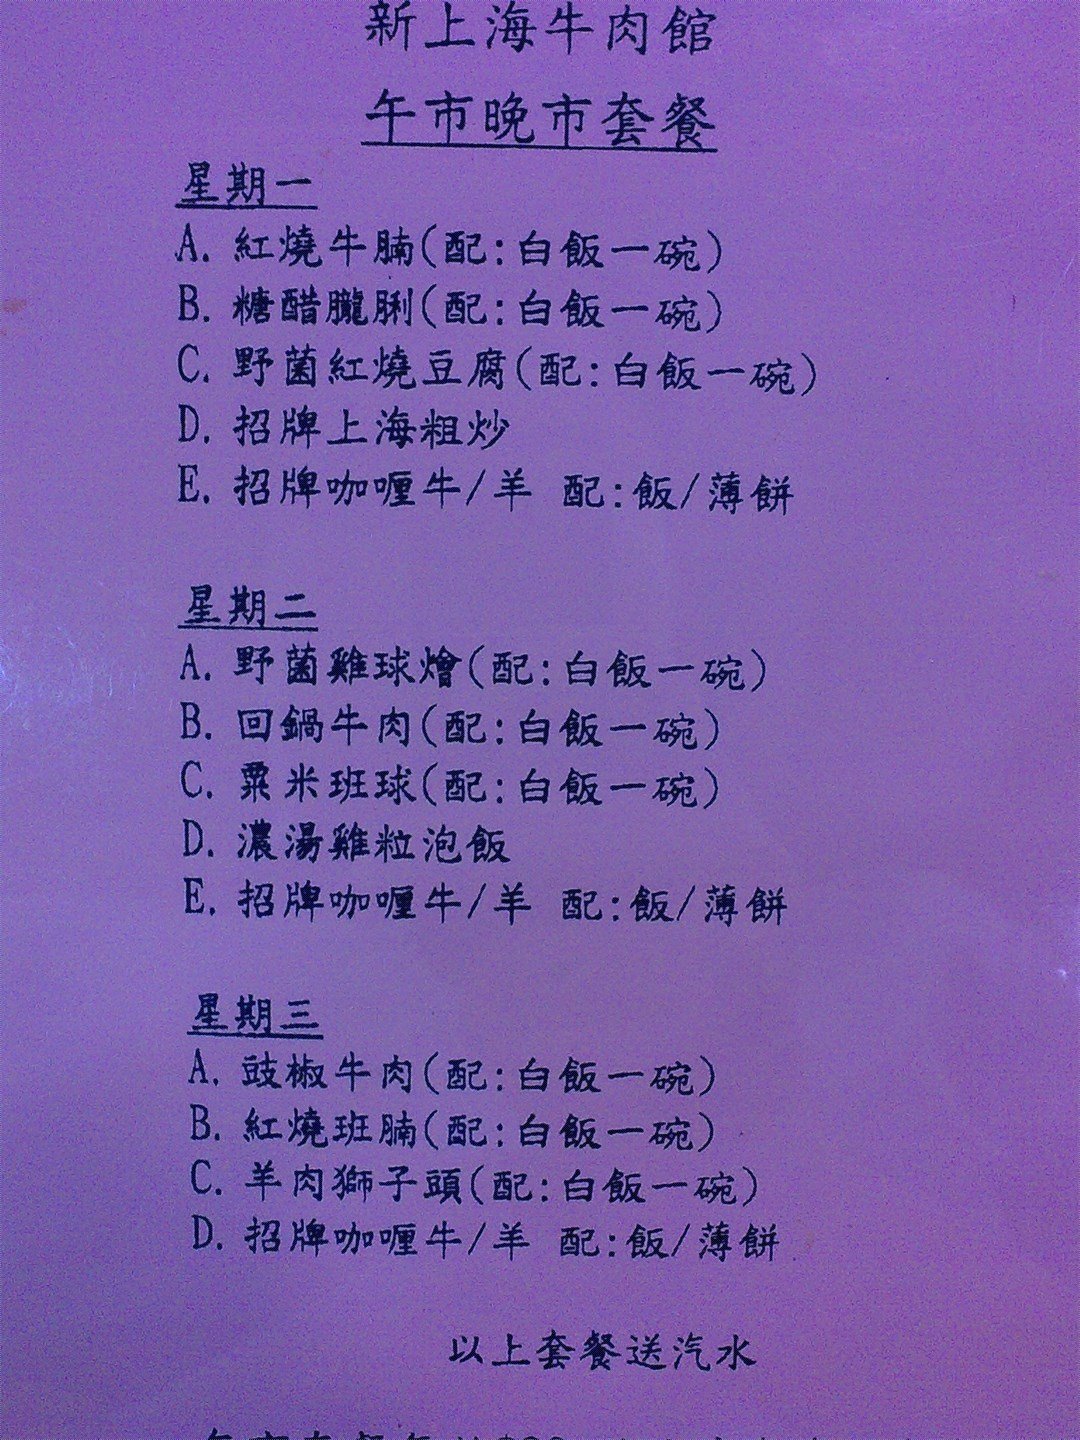 新上海牛肉館
午市晚市套餐
星期一
A. 紅燒牛腩(配:白飯一碗)
B. 糖醋朧脷(配:白飯一碗)
C. 野菌紅燒豆腐(配:白飯一碗)
D. 招牌上海粗炒
E. 招牌咖喱牛/羊 配:飯/薄餅
星期二
A. 野菌雞球燴(配:白飯一碗)
B. 回鍋牛肉(配:白飯一碗)
C. 粟米班球(配:白飯一碗)
D. 濃湯雞粒泡飯
E. 招牌咖喱牛/羊 配:飯/薄餅
星期三
A. 豉椒牛肉(配:白飯一碗)
B. 紅燒班腩(配:白飯一碗)
C. 羊肉獅子頭(配:白飯一碗)
D. 招牌咖喱牛/羊 配:飯/薄餅
以上套餐送汽水